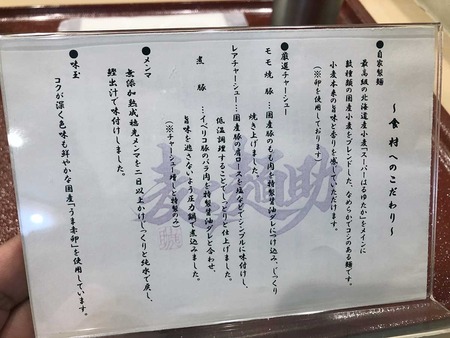 ～食材へのこだわり～
●自家製麺
最高級の北海道産小麦「スーパーはるゆたか」をメインに
数種類の国産小麦をブレンドした、なめらかでコシのある麺です。
小麦本来の旨味と香りを感じていただけます。
（※卵を使用しております）
●厳選チャーシュー
モモ焼豚…国産豚のもも肉を特製醤油ダレにつけ込み、じっくり
焼き上げました。
レアチャーシュー…国産豚の肩ロースを塩などでシンプルに味付けし、
低温調理することでしっとりと仕上げました。
煮豚…イベリコ豚のバラ肉を特製醤油ダレと合わせ、
旨味を逃さないよう圧力鍋で煮込みました。
（※チャーシュー増し、特製のみ）
●メンマ
無添加熟成穂先メンマを二日以上かけじっくりと純水で戻し、
鰹出汁で味付けしました。
●味玉
コクが深く色味も鮮やかな国産「うま赤卵」を使用しています。
麦と麺助